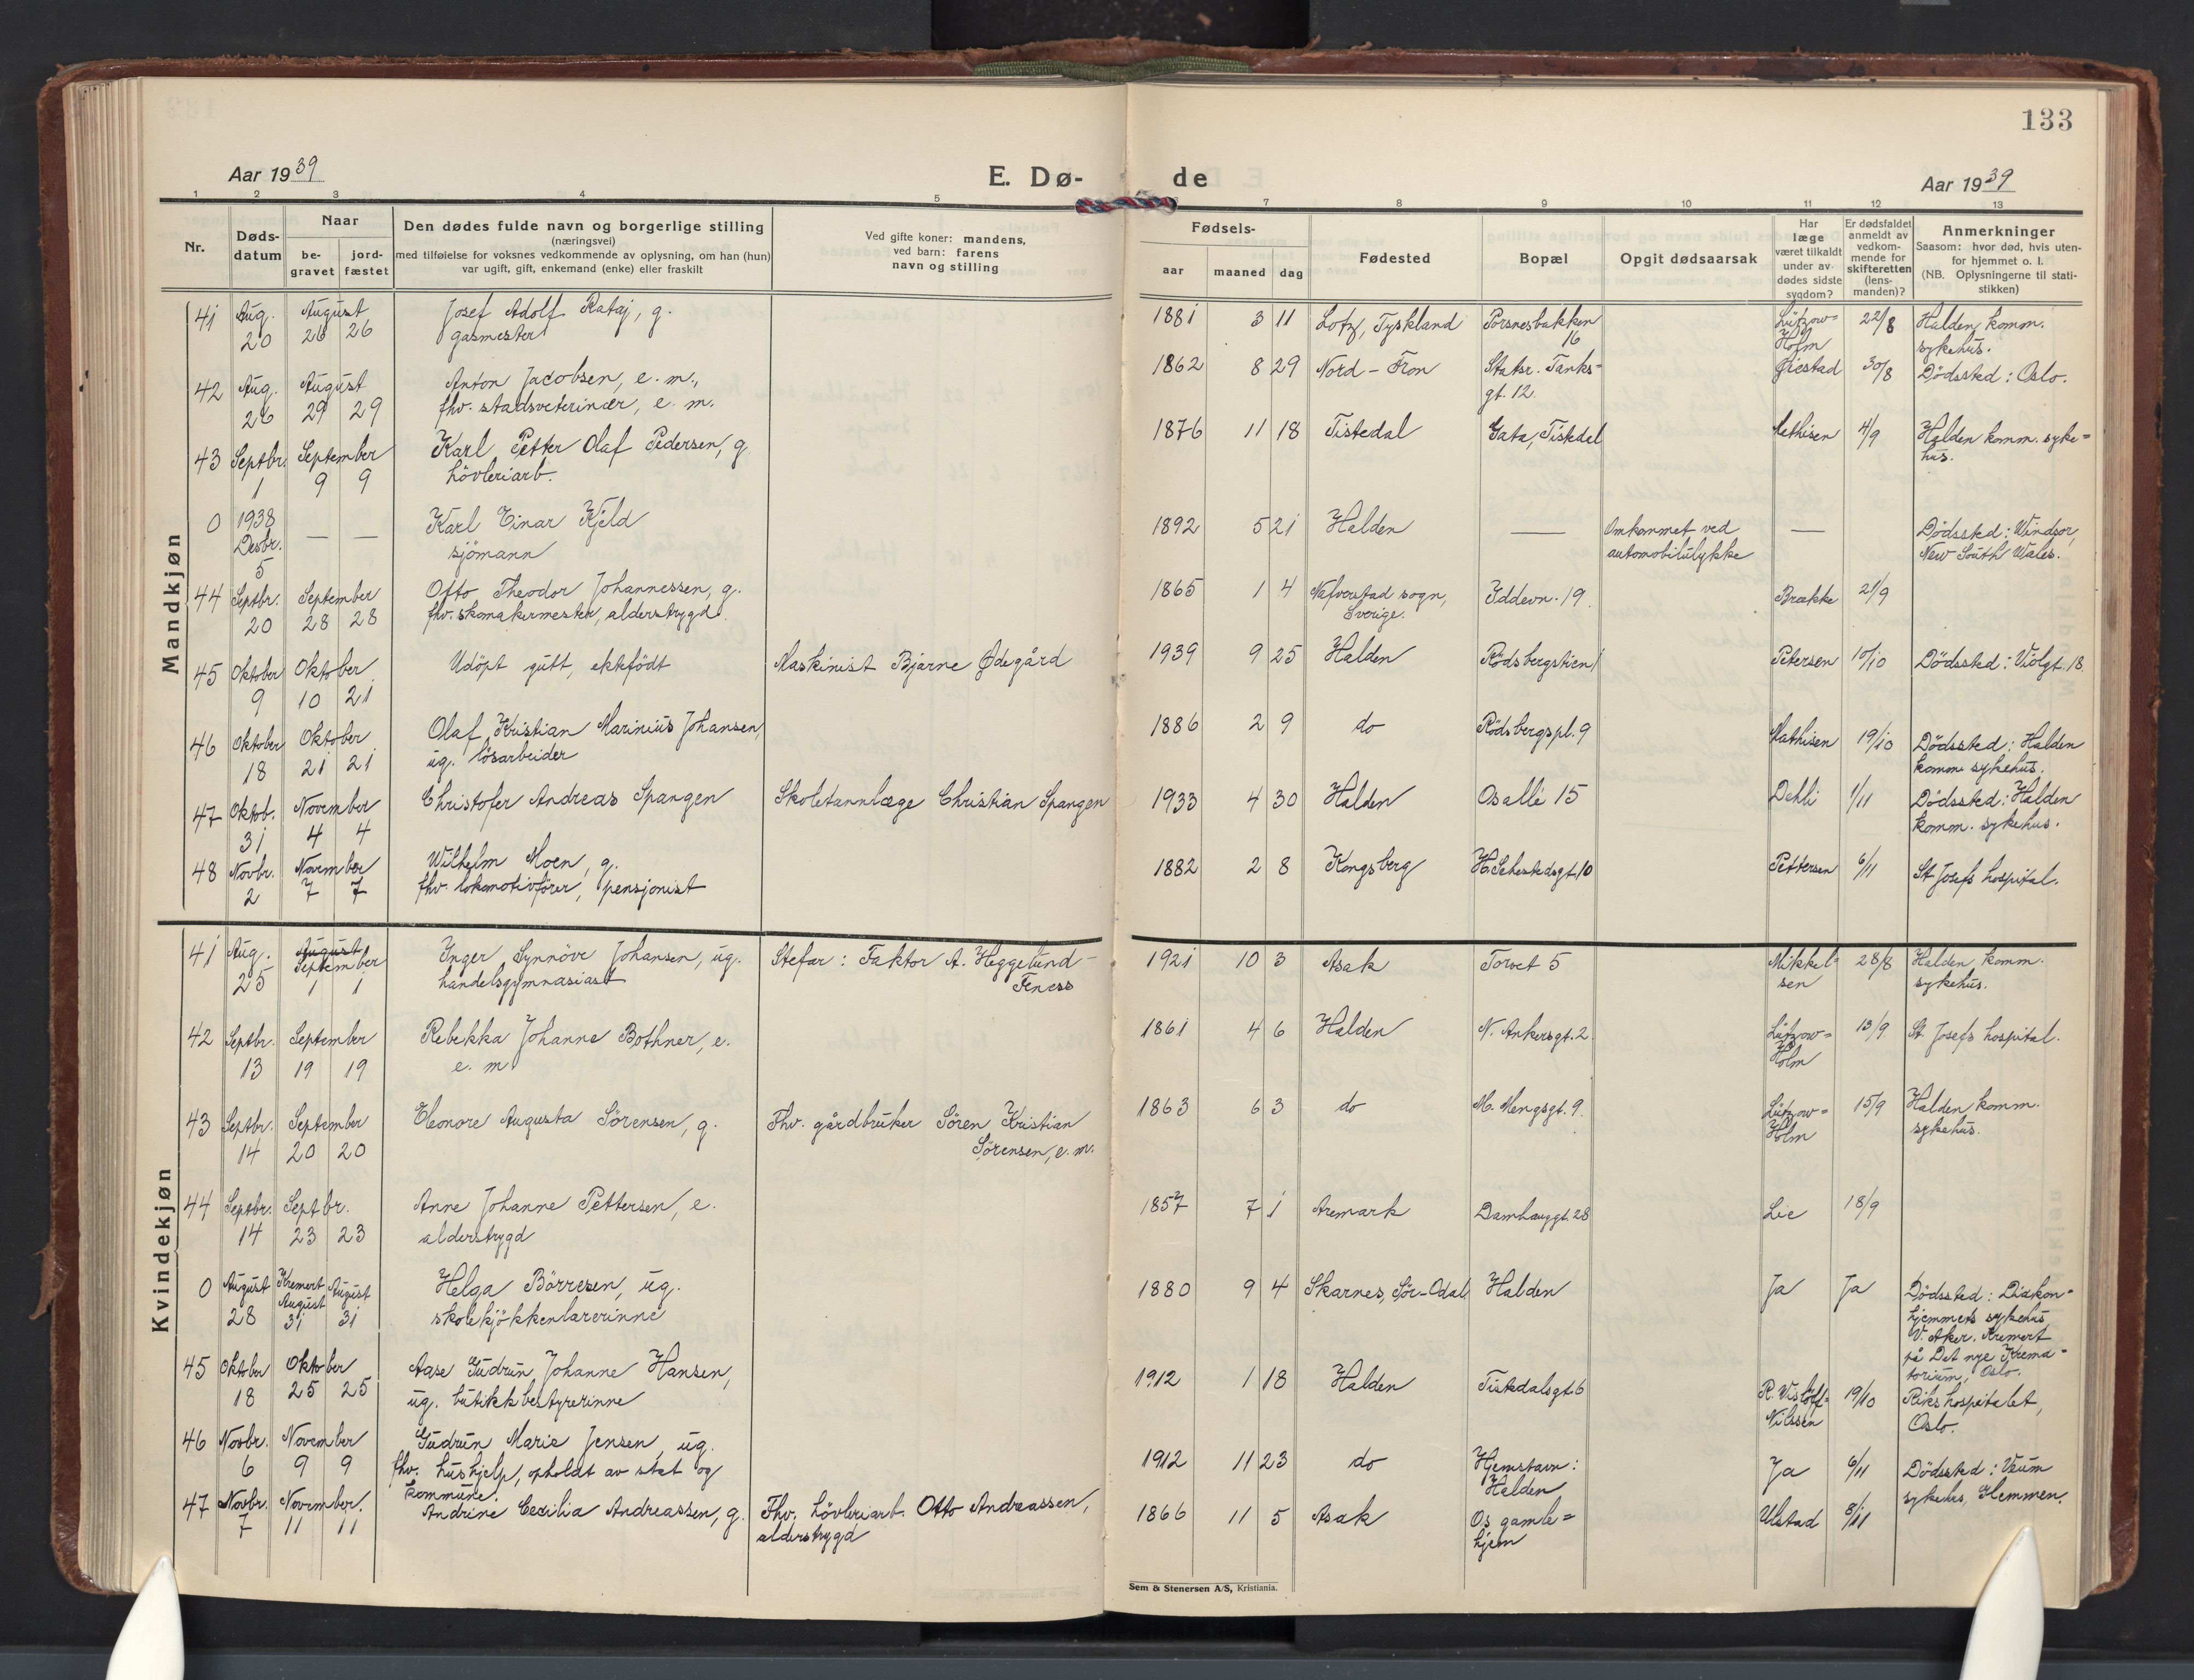 133
Aar 1939
E. Dø-
de
Aar 1939
1 2 3 4 5 7 8 9 10 11 12 13
Nr.
Døds-
datum
Naar
be-
gravet
jord-
fæstet
Den dødes fulde navn og borgerlige stilling
(næringsvei)
med tilføielse for voksnes vedkommende av oplysning, om han (hun)
var ugift, gift, enkemand (enke) eller fraskilt
Ved gifte koner: mandens,
ved barn: farens
navn og stilling
Fødsels-
aar maaned dag
Fødested
Bopæl
Opgit dødsaarsak
Har
læge
været tilkaldt
under av-
dødes sidste
sygdom?
Er dødsfaldet
anmeldt av
vedkom-
mende for
skifteretten
(lens-
manden)?
Anmerkninger
Saasom: hvor død, hvis uten-
for hjemmet o. l.
(NB. Oplysningerne til stati-
stikken)
Mandkjøn
41 Aug. August Josef Adolf Rataj, g. 1881 3 11 Lotz, Tyskland Porsnesbakken Lützow= 22/8 Halden komm.
20 26 26 gasmester 16 Holm sykehus.
42 Aug. August Anton Jacobsen, e. m., 1862 8 29 Nord-Fron Statsr. Tanks= Øiestad 30/8 Dödssted: Oslo.
26 29 29 fhv. stadsveterinær, e. m. gt. 12.
43 Septbr. September Karl Petter Olaf Pedersen, g. 1876 11 18 Tistedal Gata, Tistdal Mathisen 4/9 Halden komm. syke=
1 9 9 hövleriarb. hus.
0 1938 Karl Einar Kjeld 1892 5 21 Halden — Omkommet ved — Dödssted: Windsor,
Desbr. — — sjömann automobilulykke New South Wales.
5
44 Septbr. September Otto Theodor Johannessen, g. 1865 1 4 Nafverstad sogn, Iddevn. 19 Brække 21/9
20 28 28 fhv. skomakermester, alderstrygd. Sverige.
45 Oktober Oktober Udöpt gutt, ektfödt Maskinist Bjarne Ødegård 1939 9 25 Halden Rödsbergstien 1 Petersen 10/10 Dödssted: Violgt. 18.
9 10 21
46 Oktober Oktober Olaf Kristian Marinius Johansen, 1886 2 9 do Rödsbergspl. 9 Mathisen 19/10 Dödssted: Halden
18 21 21 ug. lösarbeider komm. sykehus.
47 Oktob. November Christofer Andreas Spangen Skoletannlæge Christian Spangen 1933 4 30 Halden Osallé 15 Dehli 1/11 Dödssted: Halden
31 4 4 komm. sykehus.
48 Novbr. November Wilhelm Moen, g. 1882 2 8 Kongsberg H. Sehestedsgt. 10 Pettersen 6/11 St. Josefs hospital.
2 7 7 fhv. lokomotivförer, pensjonist
Kvindekjøn
41 Aug. August Inger Synnöve Johansen, ug. Stefar: Faktor A. Heggelund- 1921 10 3 Asak Torvet 5 Mikkel= 28/8 Halden komm.
September
25 1 1 handelsgymnasiast Feness sen sykehus.
42 Septbr. September Rebekka Johanne Bothner, e. 1861 4 6 Halden N. Ankersgt. 2 Lützow= 13/9 St. Josefs hospital.
13 19 19 e. m. Holm
43 Septbr. September Eleonore Augusta Sörensen, g. Fhv. gårdbruker Sören Kristian 1863 6 3 do M. Mengsgt. 9. Lützow= 15/9 Halden komm.
14 20 20 Sörensen, e. m. Holm sykehus.
44 Septbr. Septbr. Anne Johanne Pettersen, e. 1857 7 1 Aremark Damhauggt. 28 Lie 18/9
14 23 23 alderstrygd
0 August Kremert August Helga Börresen, ug. 1880 9 4 Skarnes, Sör-Odal Halden Ja Ja Dödssted: Diakon=
August
28 31 31 skolekjökkenlærerinne hjemmets sykehus,
V. Aker. Kremert
på Det nye Krema=
torium, Oslo.
45 Oktober Oktober Aase Gudrun Johanne Hansen, 1912 1 18 Halden Tistedalsgt. 6 R. Vislöff= 19/10 Rikshospitalet,
18 25 25 ug. butikkbestyrerinne Nilssen Oslo.
46 Novbr. November Gudrun Marie Jensen, ug. 1912 11 23 do Hjemstavn: Ja 6/11 Dödssted: Veum
6 9 9 fhv. hushjelp, opholdt av stat og Halden sykehus, Glemmen.
kommune.
47 Novbr. November. Andrine Cecilia Andreassen, g. Fhv. hövleriarb. Otto Andreassen, 1866 11 5 Asak Os gamle= Ulstad 8/11
7 11 11 alderstrygd hjem
Sem & Stenersen A/S, Kristiania.